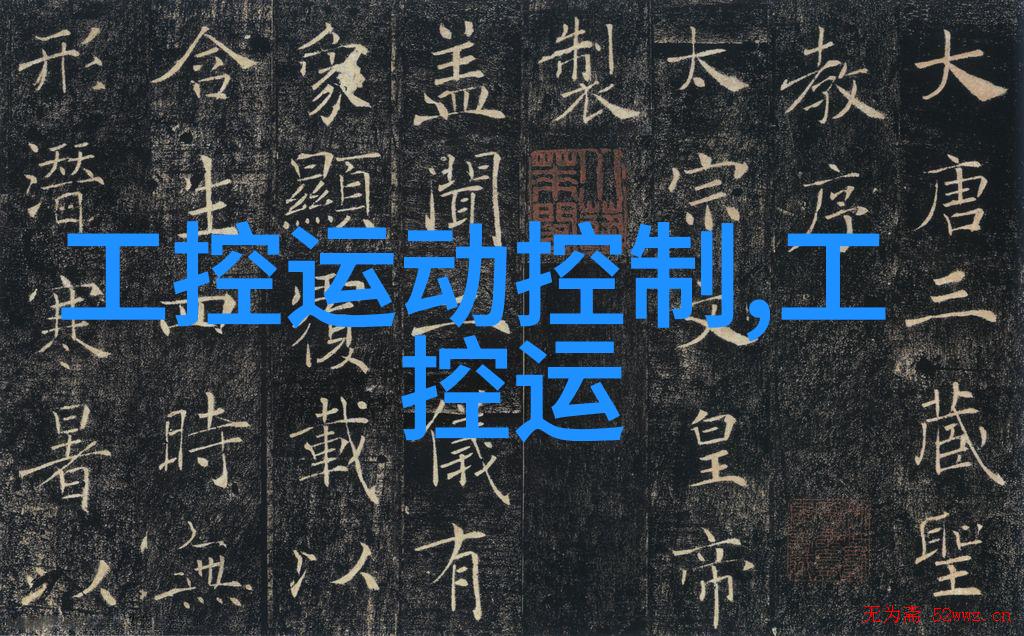 大唐三蔵聖
教序
太宗文皇帝
製
盖聞二儀有
象顯覆載以
含生四時無
形潛寒暑以
工控运动控制,工
控运
无为斋 52wwz.cn